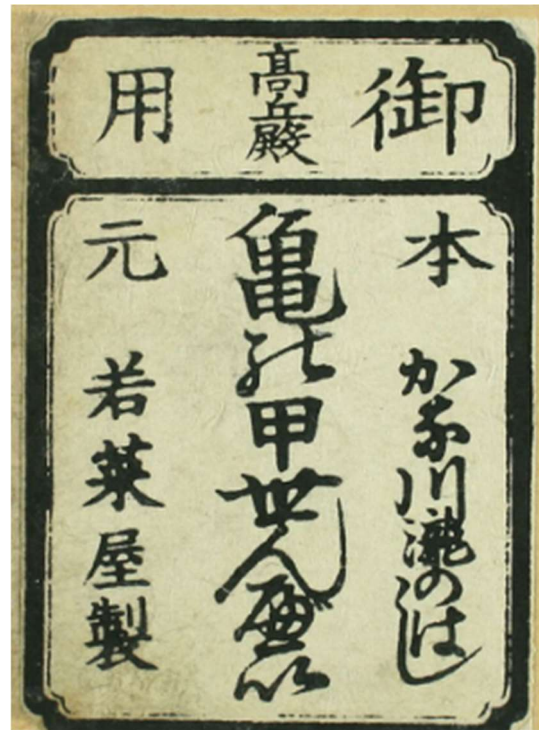 御
髙丘殿
用
本 かな川瀧のはし
亀の甲せんべい
元 若菜屋製